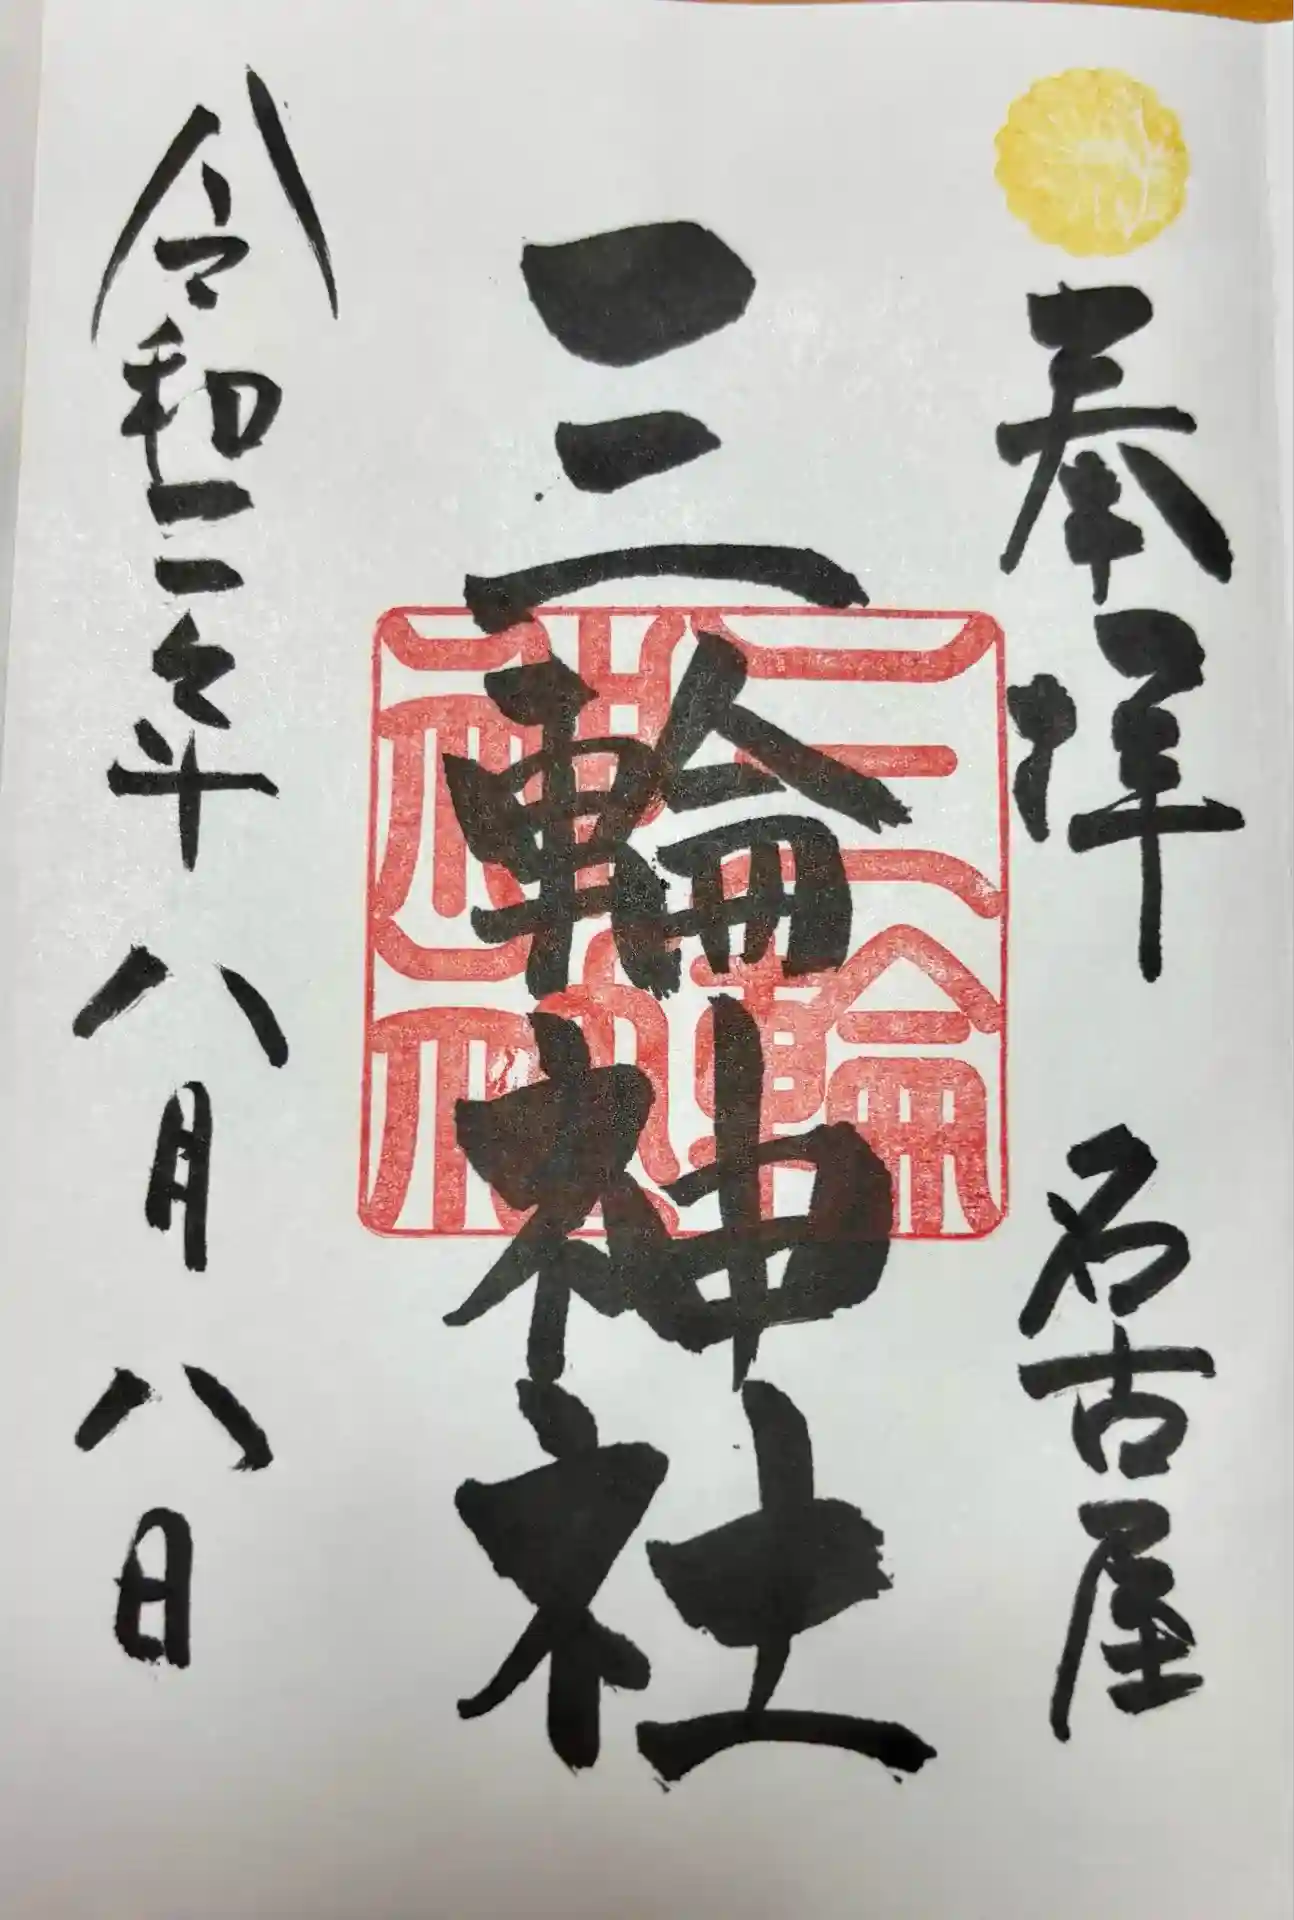 奉拝 名古屋
三輪神社
三輪
神社
令和二年八月八日